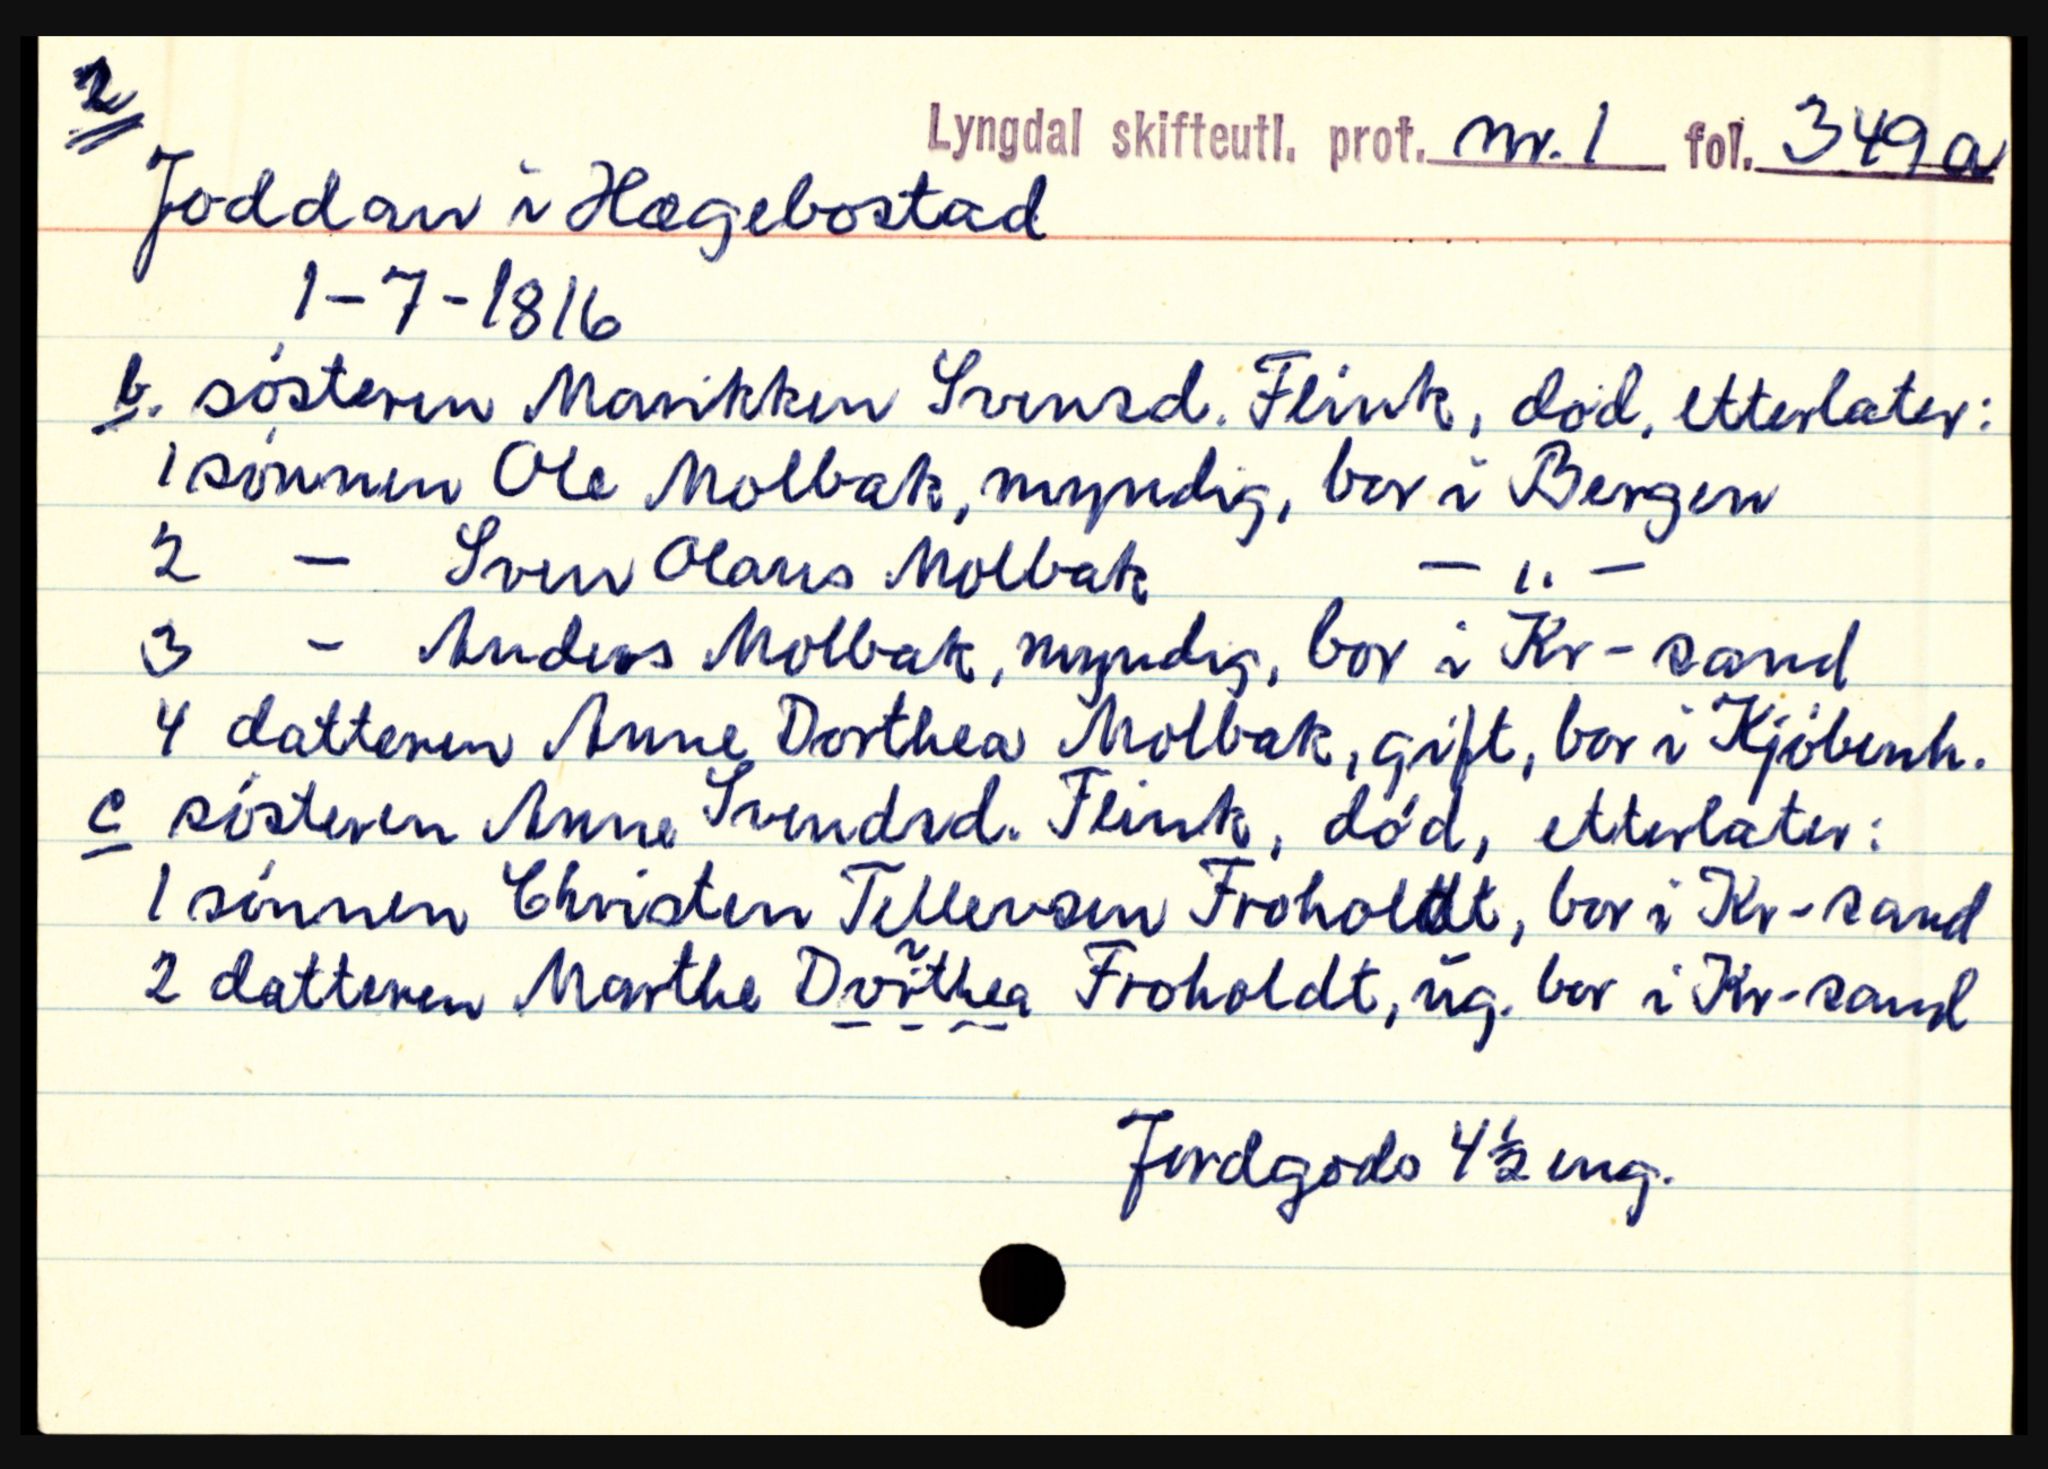 2
Lyngdal skifteutl. prot. nr. 1 fol. 349a
Joddan i Hægebostad
1-7-1816
b. søsteren Marikken Svensd. Flink, død, etterlater:
1 sønnen Ole Molbak, myndig, bor i Bergen
2 — Sven Olaus Molbak — " —
3 - Anders Molbak, myndig, bor i Kr-sand
4 datteren Anne Dorthea Molbak, gift, bor i Kjøbenh.
c søsteren Anne Svendsd. Flink, død, etterlater:
1 sønnen Christen Tellevsen Froholdt, bor i Kr-sand
2 datteren Marthe Dorthea Froholdt, ug. bor i Kr-sand
Jordgods 4½ eng.